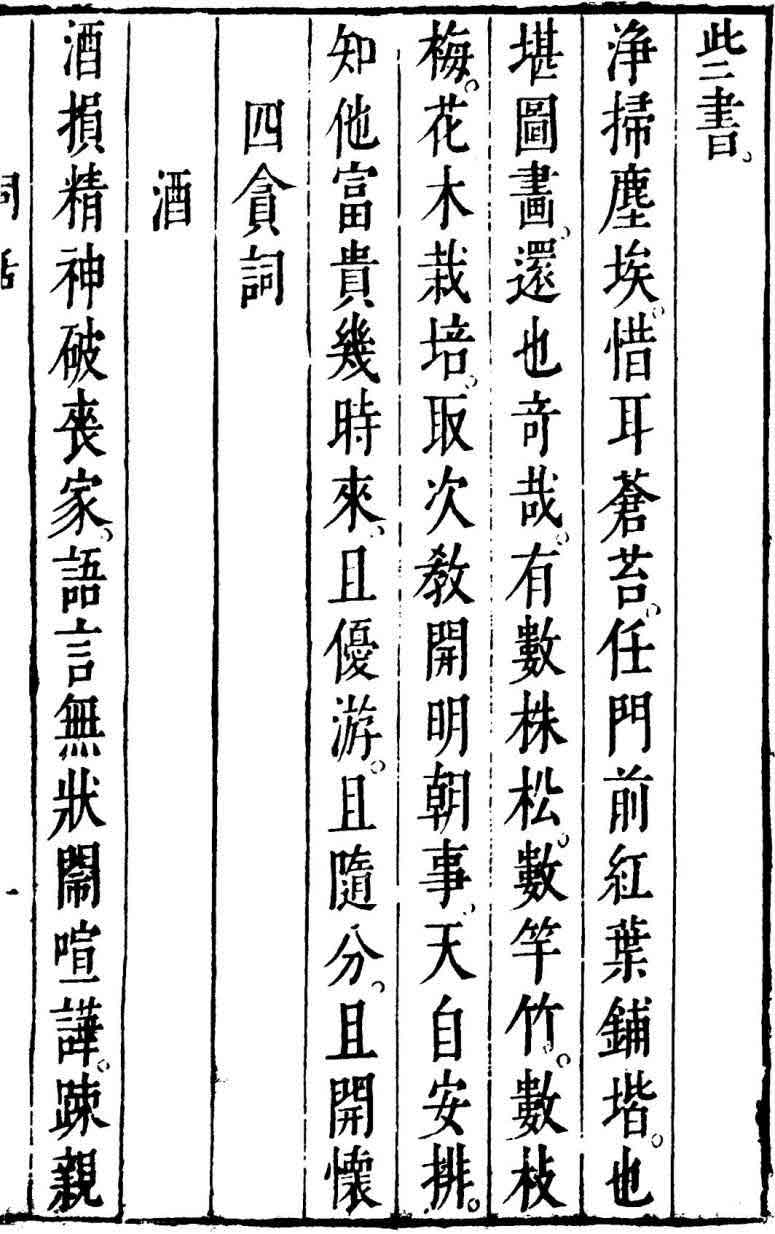 些書。
淨掃塵埃。惜耳蒼苔。任門前紅葉鋪堦。也
堪圖畫。還也奇哉。有數株松。數竿竹。數枝
梅。花木栽培。取次教開明朝事。天自安排。
知他富貴幾時來。且優游。且隨分。且開懷
四貪詞
酒
酒損精神破喪家。語言無狀鬧喧譁。疎親